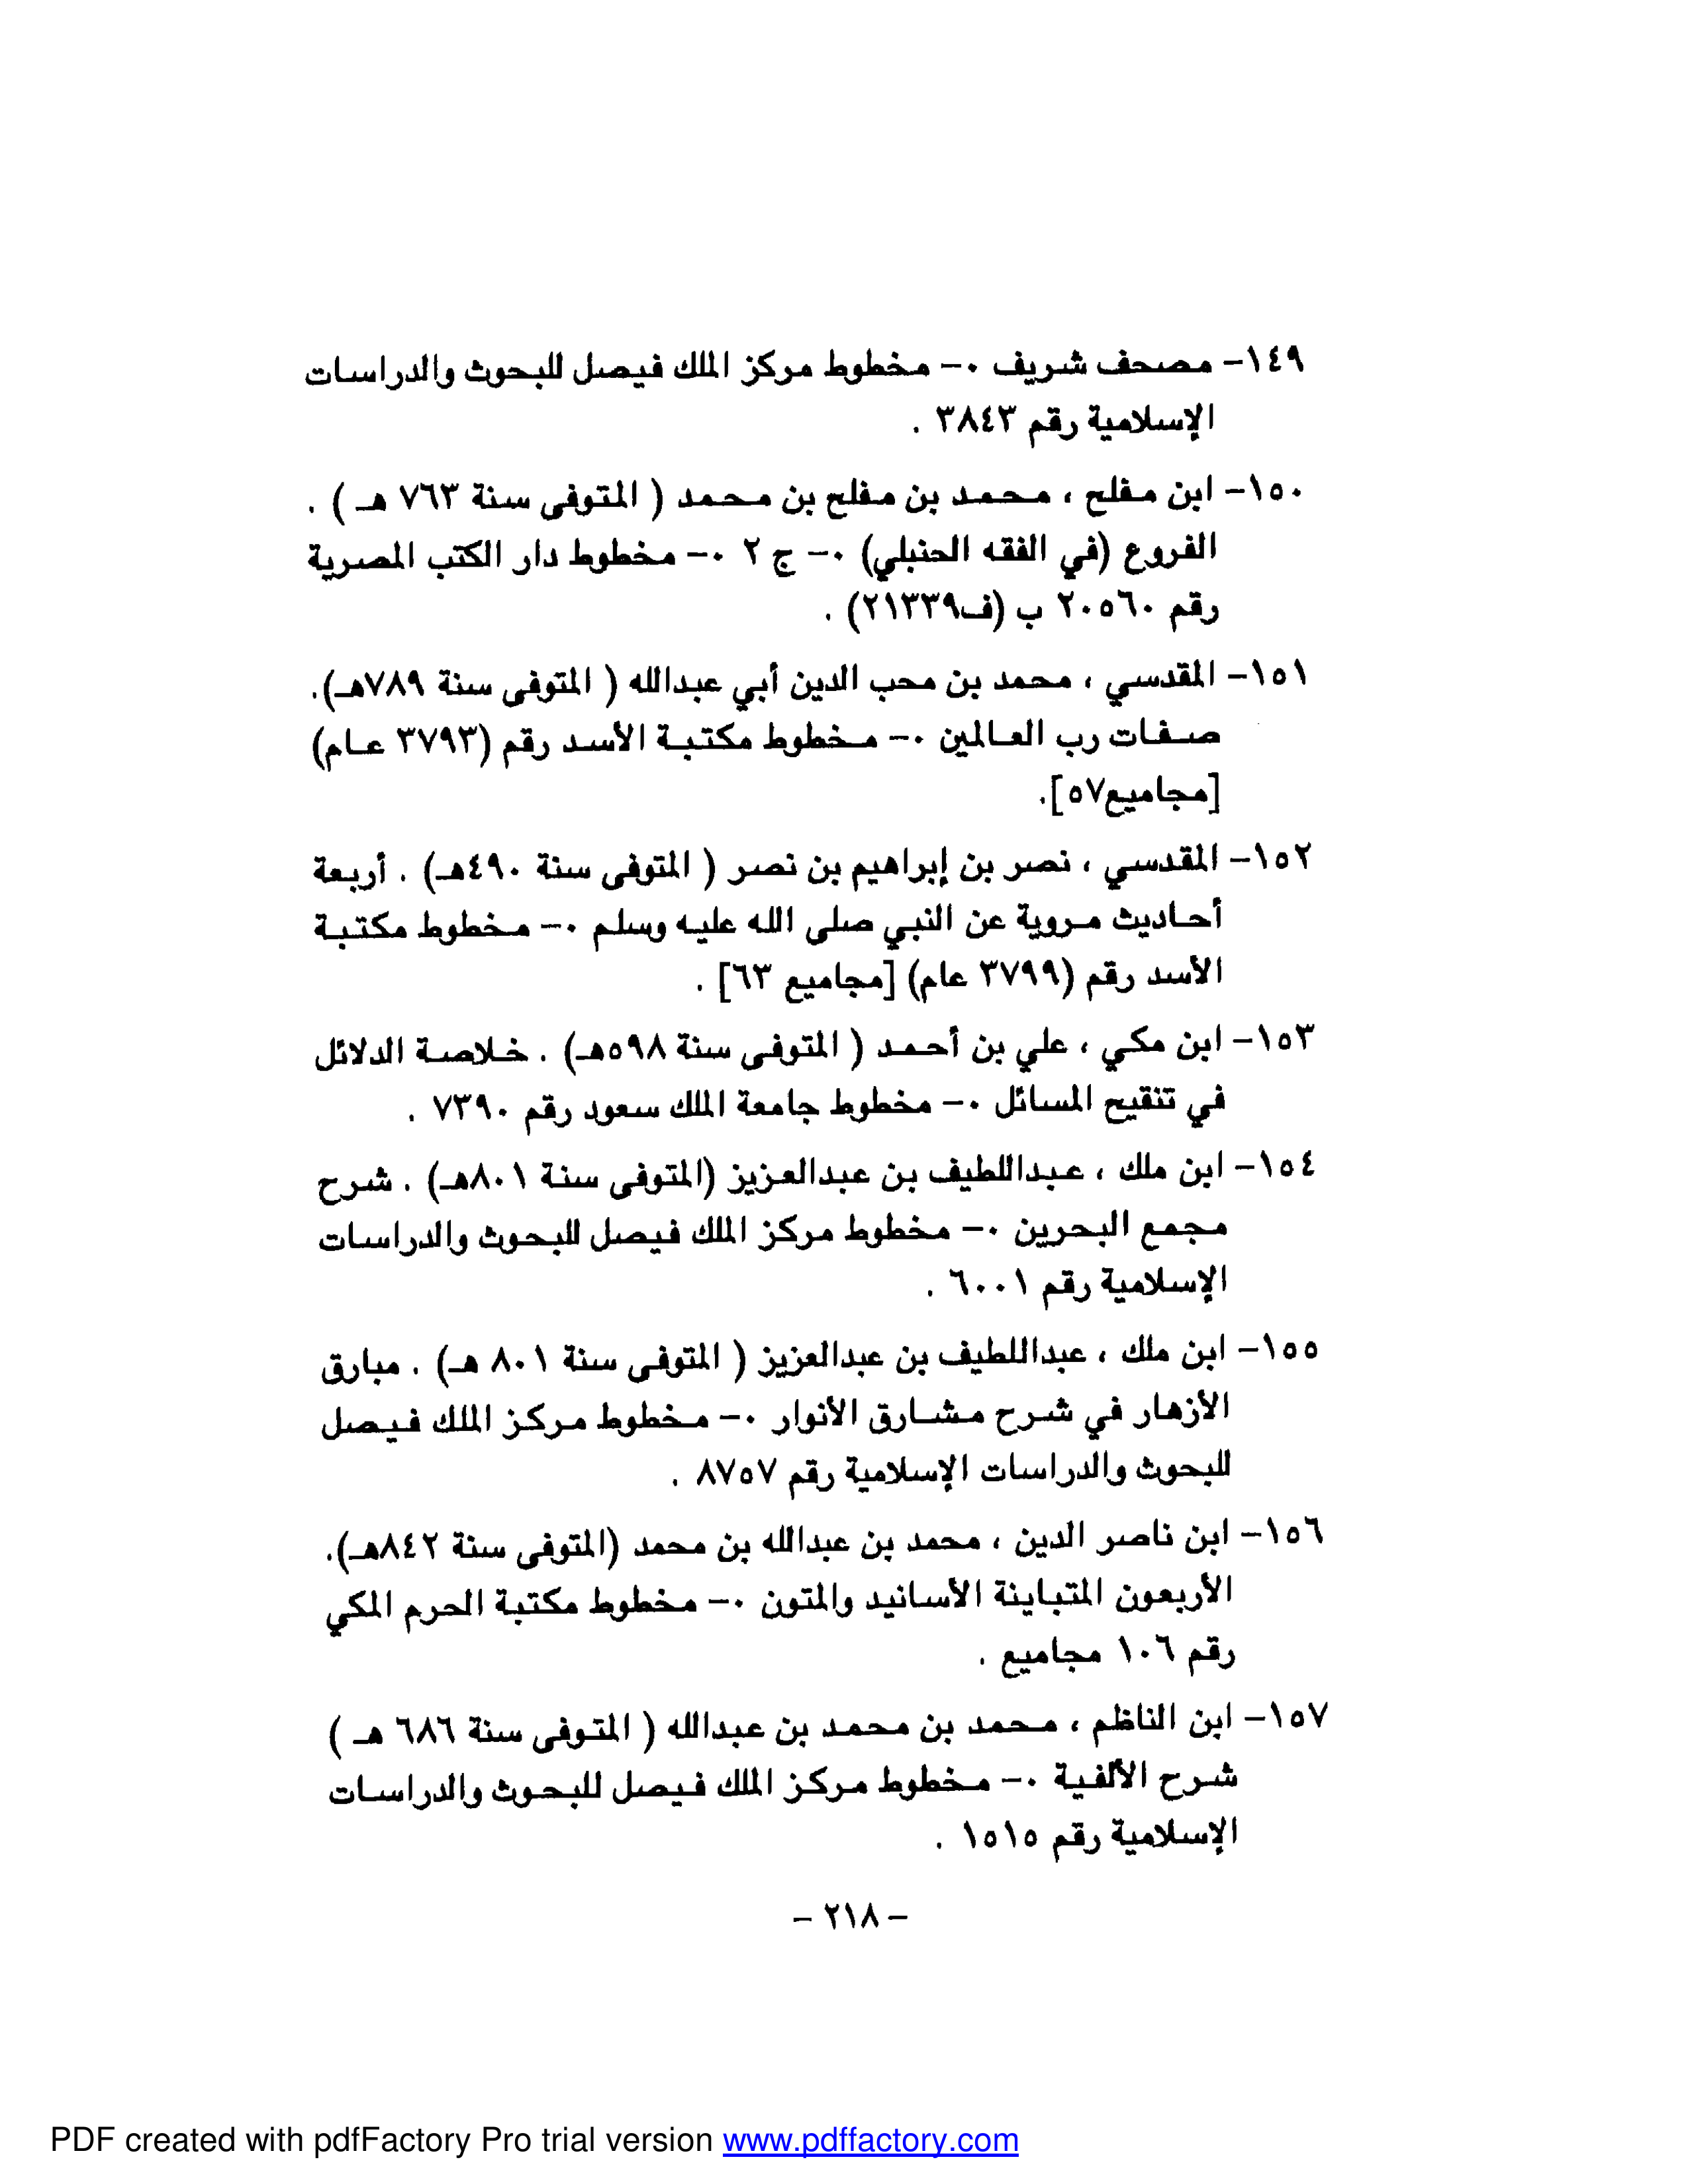 ١٤٩- مصحف شريف ٠- مخطوط مركز الملك فيصل للبحوث والدراسات
الإسلامية رقم ٣٨٤٣ .
١٥٠- ابن مفلح ، محمد بن مفلح بن محمد ( المتوفى سنة ٧٦٣ هـ ) .
الفروع (في الفقه الحنبلي) ٠- ج ٢ ٠- مخطوط دار الكتب المصرية
رقم ٢٠٥٦٠ ب (ف٢١٣٣٩) .
١٥١- المقدسي ، محمد بن محب الدين أبي عبدالله ( المتوفى سنة ٧٨٩هـ).
صفات رب العالمين ٠- مخطوط مكتبة الأسد رقم (٣٧٩٣ عام)
[مجاميع٥٧].
١٥٢- المقدسي ، نصر بن إبراهيم بن نصر ( المتوفى سنة ٤٩٠هـ) . أربعة
أحاديث مروية عن النبي صلى الله عليه وسلم ٠- مخطوط مكتبة
الأسد رقم (٣٧٩٩ عام) [مجاميع ٦٣] .
١٥٣- ابن مكي ، علي بن أحمد ( المتوفى سنة ٥٩٨هـ) . خلاصة الدلائل
في تنقيح المسائل ٠- مخطوط جامعة الملك سعود رقم ٧٣٩٠ .
١٥٤- ابن ملك ، عبداللطيف بن عبدالعزيز (المتوفى سنة ٨٠١هـ) . شرح
مجمع البحرين ٠- مخطوط مركز الملك فيصل للبحوث والدراسات
الإسلامية رقم ٦٠٠١ .
١٥٥- ابن ملك ، عبداللطيف بن عبدالعزيز ( المتوفى سنة ٨٠١ هـ) . مبارق
الأزهار في شرح مشارق الأنوار ٠- مخطوط مركز الملك فيصل
للبحوث والدراسات الإسلامية رقم ٨٧٥٧ .
١٥٦- ابن ناصر الدين ، محمد بن عبدالله بن محمد (المتوفى سنة ٨٤٢هـ).
الأربعون المتباينة الأسانيد والمتون ٠- مخطوط مكتبة الحرم المكي
رقم ١٠٦ مجاميع .
١٥٧- ابن الناظم ، محمد بن محمد بن عبدالله ( المتوفى سنة ٦٨٦ هـ )
شرح الألفية ٠- مخطوط مركز الملك فيصل للبحوث والدراسات
الإسلامية رقم ١٥١٥ .
- ٢١٨ -
PDF created with pdfFactory Pro trial version www.pdffactory.com